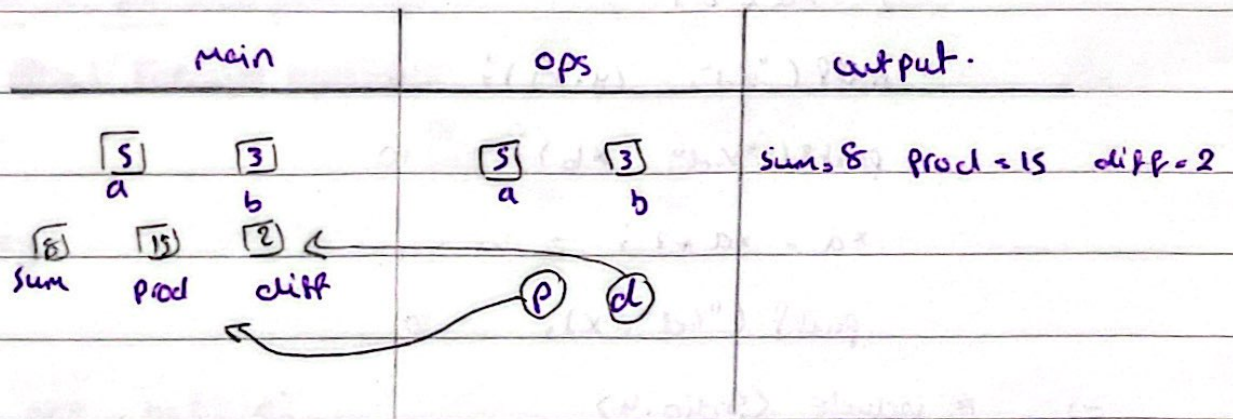 main ops output.
5 3 5 3 sum=8 prod=15 diff=2
a b a b
8 15 2
sum prod diff p d